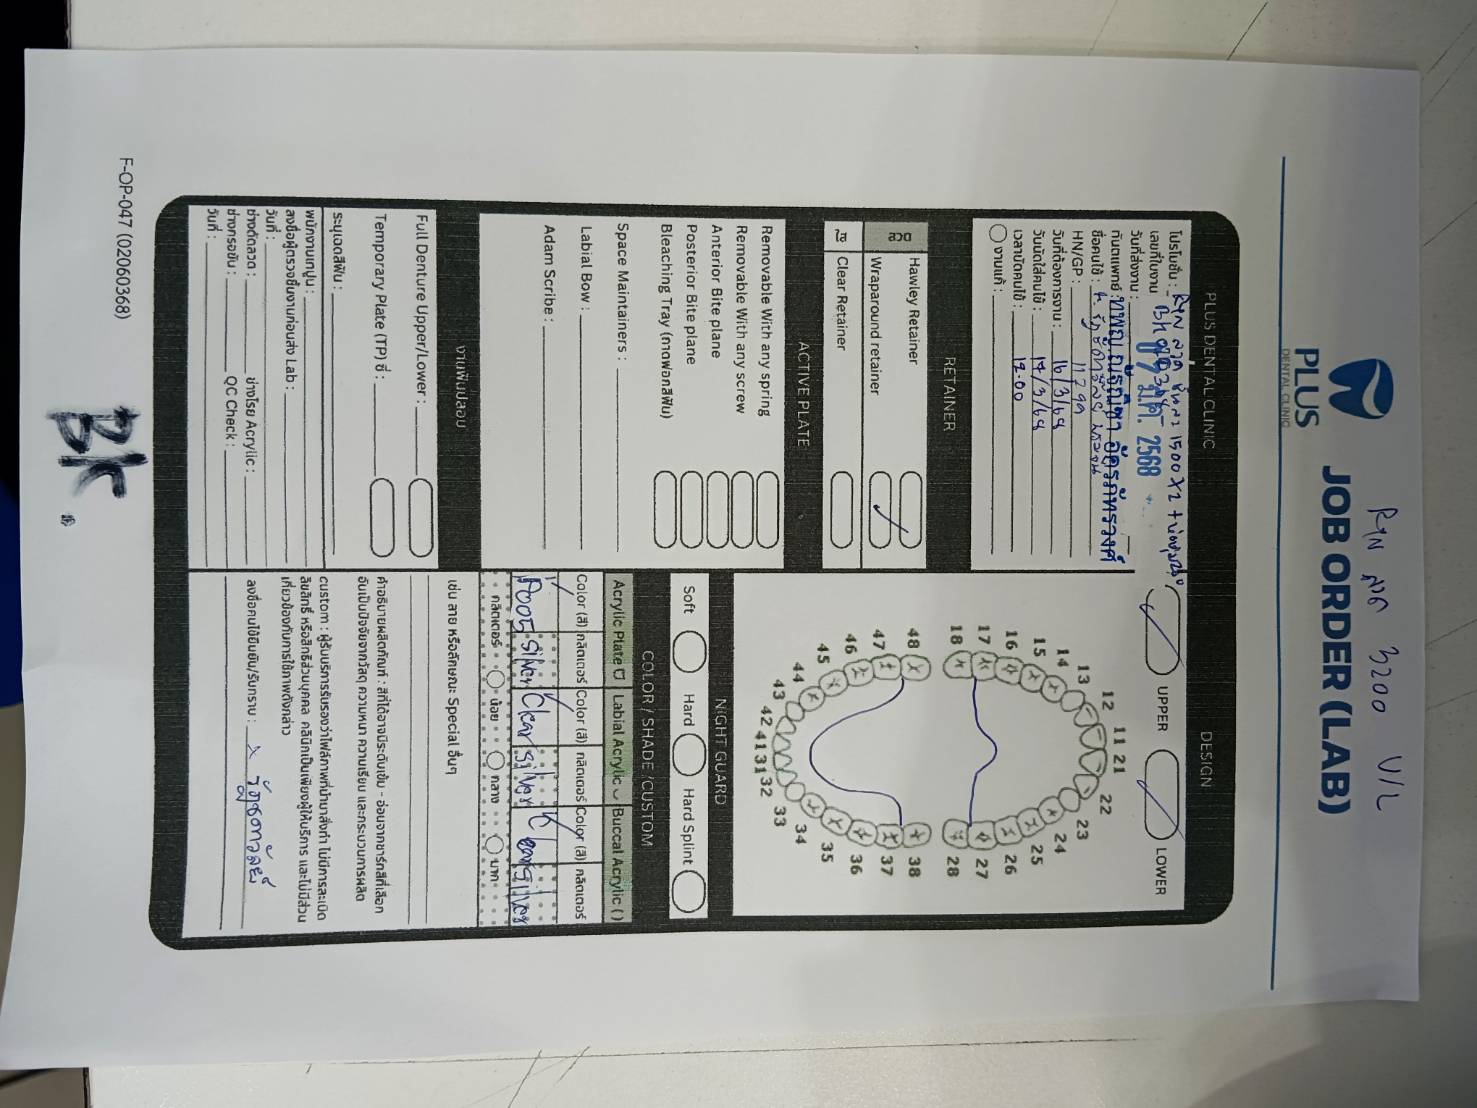 RTN ลวด 3200 U/L
PLUS
DENTAL CLINIC
JOB ORDER (LAB)
PLUS DENTAL CLINIC
โปรโมชั่น : RTN ลวด 1500 x 2
เลขที่ใบงาน
วันที่ส่งงาน : 07 มี.ค. 2568
ทันตแพทย์ :
ชื่อคนไข้ :
HN/GP :
วันที่ต้องการงาน : 16/3/68
วันนัดใส่คนไข้ : 17/3/68
เวลานัดคนไข้ : 17.00
งานแก้ :
RETAINER
ลวด
Hawley Retainer
Wraparound retainer
ใส
Clear Retainer
ACTIVE PLATE
Removable With any spring
Removable With any screw
Anterior Bite plane
Posterior Bite plane
Bleaching Tray (ถาดฟอกสีฟัน)
Space Maintainers :
Labial Bow :
Adam Scribe :
งานฟันปลอม
Full Denture Upper/Lower :
Temporary Plate (TP) ซี่ :
ระบุเฉดสีฟัน :
พนักงานเทปูน :
ลงชื่อผู้ตรวจชิ้นงานก่อนส่ง Lab :
วันที่ :
ช่างดัดลวด : ช่างโรย Acrylic :
ช่างกรอขัด : QC Check :
วันที่ :
DESIGN
UPPER LOWER
12 11 21 22
13 23
14 24
15 25
16 26
17 27
18 28
48 38
47 37
46 36
45 35
44 34
43 33
42 41 31 32
NIGHT GUARD
Soft Hard Hard Splint
COLOR / SHADE /CUSTOM
Acrylic Plate Labial Acrylic Buccal Acrylic ( )
Color (สี) กลิตเตอร์ Color (สี) กลิตเตอร์ Color (สี) กลิตเตอร์
P005 silver Clear silver Clear silver
กลิตเตอร์ น้อย กลาง มาก
เช่น ลาย หรือลักษณะ Special อื่นๆ
คำอธิบายผลิตภัณฑ์ : สีที่ได้อาจมีระดับเข้ม - อ่อนจากชาร์ทสีที่เลือก
อันเป็นปัจจัยจากวัสดุ ความหนา ความเรียบ และกระบวนการผลิต
custom : ผู้รับบริการรับรองว่าไฟล์ภาพที่นำมาสั่งทำ ไม่มีการละเมิด
ลิขสิทธิ์ หรือสิทธิส่วนบุคคล คลินิกเป็นเพียงผู้ให้บริการ และไม่มีส่วน
เกี่ยวข้องกับการใช้ภาพดังกล่าว
ลงชื่อคนไข้ยืนยัน/รับทราบ : x
F-OP-047 (02060368)
BK.